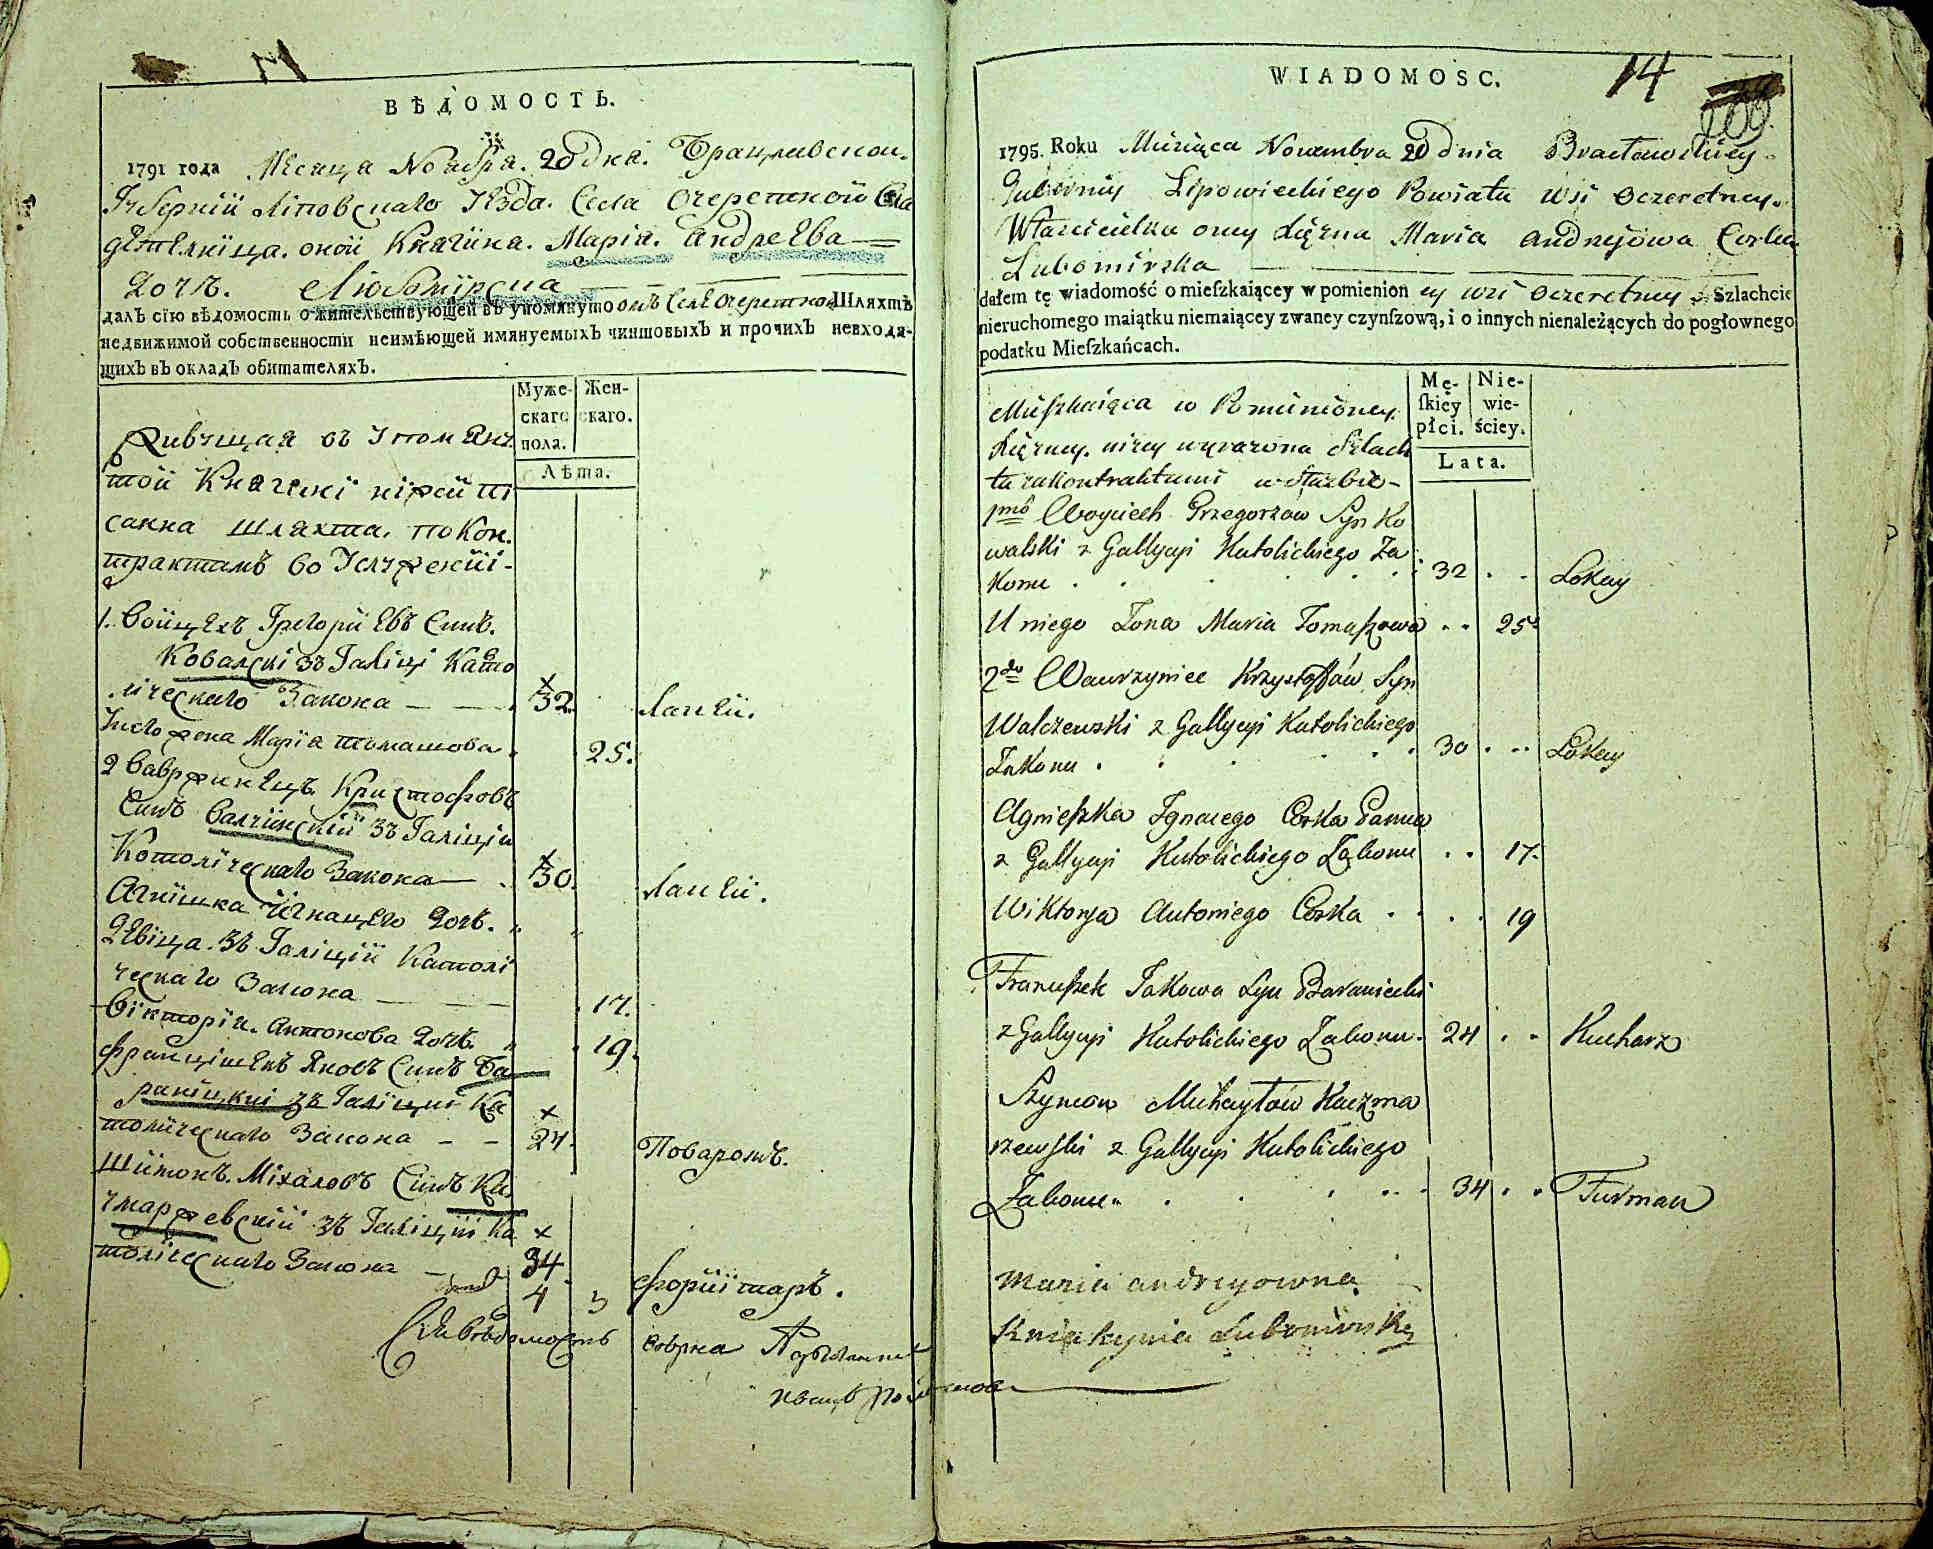 ВѢДОМОСТЬ.
1791 года Месяца Ноября. 20 дня. Брацлавской.
Губернїи Ліповскаго Уѣзда. Села Очеретной Вла
дѣтелніца. оной Княгїня. Марїя. Андреева
Дочь. Любомїрска
далъ сїю вѣдомость о жительствующей въ упомянутомъ Селе Очеретной Шляхтѣ
недвижимой собственности неимѣющей имянуемыхъ чиншовыхъ и прочихъ невходя-
щихъ въ окладъ обитателяхъ.
Муже-скаго пола. Жен-скаго.
Лѣта.
Живущая въ упомяну
той Княгині нїжей пи
санна шляхта. по кон.
трактамъ во Услуженїї-
1. Войцехъ Грегориевъ Синъ.
Ковалскі зъ Галіції Като
лическаго Закона 32. Лакей.
У него жена Марїя томашова 25.
2 Вавржинецъ Кристофовъ
Синъ Валчинскїй зъ Галіціи
Католїческаго Закона 30. Лакей.
Агнїшка Їгнацего Дочь.
Девїца. Зъ Галїції Католі
ческаго Закона 17.
Вїкторїя. Антонова Дочь. 19.
Францїшекъ Яковъ Синъ Ба
раніцкиі зъ Галіциї Ка
толическаго Закона 24. Поваромъ.
Шимонъ. Міхаловъ Синъ Ка
чмаржевскїй зъ Галіциї Ка
толіческаго Закона 34 Форїйтаръ.
4 3
Сию вѣдомость
WIADOMOSC. 14
1795. Roku Miesiąca Novembra 20 dnia Bracławskiey.
Gubernij Lipowieckiego Powiatu wsi Oczeretney.
Właścicielka oney Xiężna Maria Andrejowa Corka
Lubomirska
dałem tę wiadomość o mieſzkaiącey w pomienioney wsi Oczeretney Szlachcie
nieruchomego maiątku niemaiącey zwaney czynſzową, i o innych nienależących do pogłownego
podatku Mieſzkańcach.
Mę-ſkiey płci. Nie-wie-ściey.
Lata.
Mieſzkaiąca w Pomienioney.
Xiężney. niżey wyrażona Szlach
ta za kontraktami w Służbie-
1mo Woyciech Przegorzow Syn Ko
walski z Gallycyi Katolickiego Za
konu 32 Lokay
U niego Zona Maria Tomaſzowa 25
2do Wawrzyniec Krzysztoffów Syn
Walczewski z Gallycyi Katolickiego
Zakonu 30 Lokay
Agnieſzka Ignacego Corka Panna
z Gallycyi Katolickiego Zakonu 17.
Wiktorya Antoniego Corka 19
Franciſzek Jakowa Syn Baraniecki
z Gallycyi Katolickiego Zakonu. 24 Kucharz
Szymon Michayłow Kaczma
rzewſki z Gallycyi Katolickiego
Zakonu 34 Furman
Maria andreyowna
Kniahynia Lubomirska